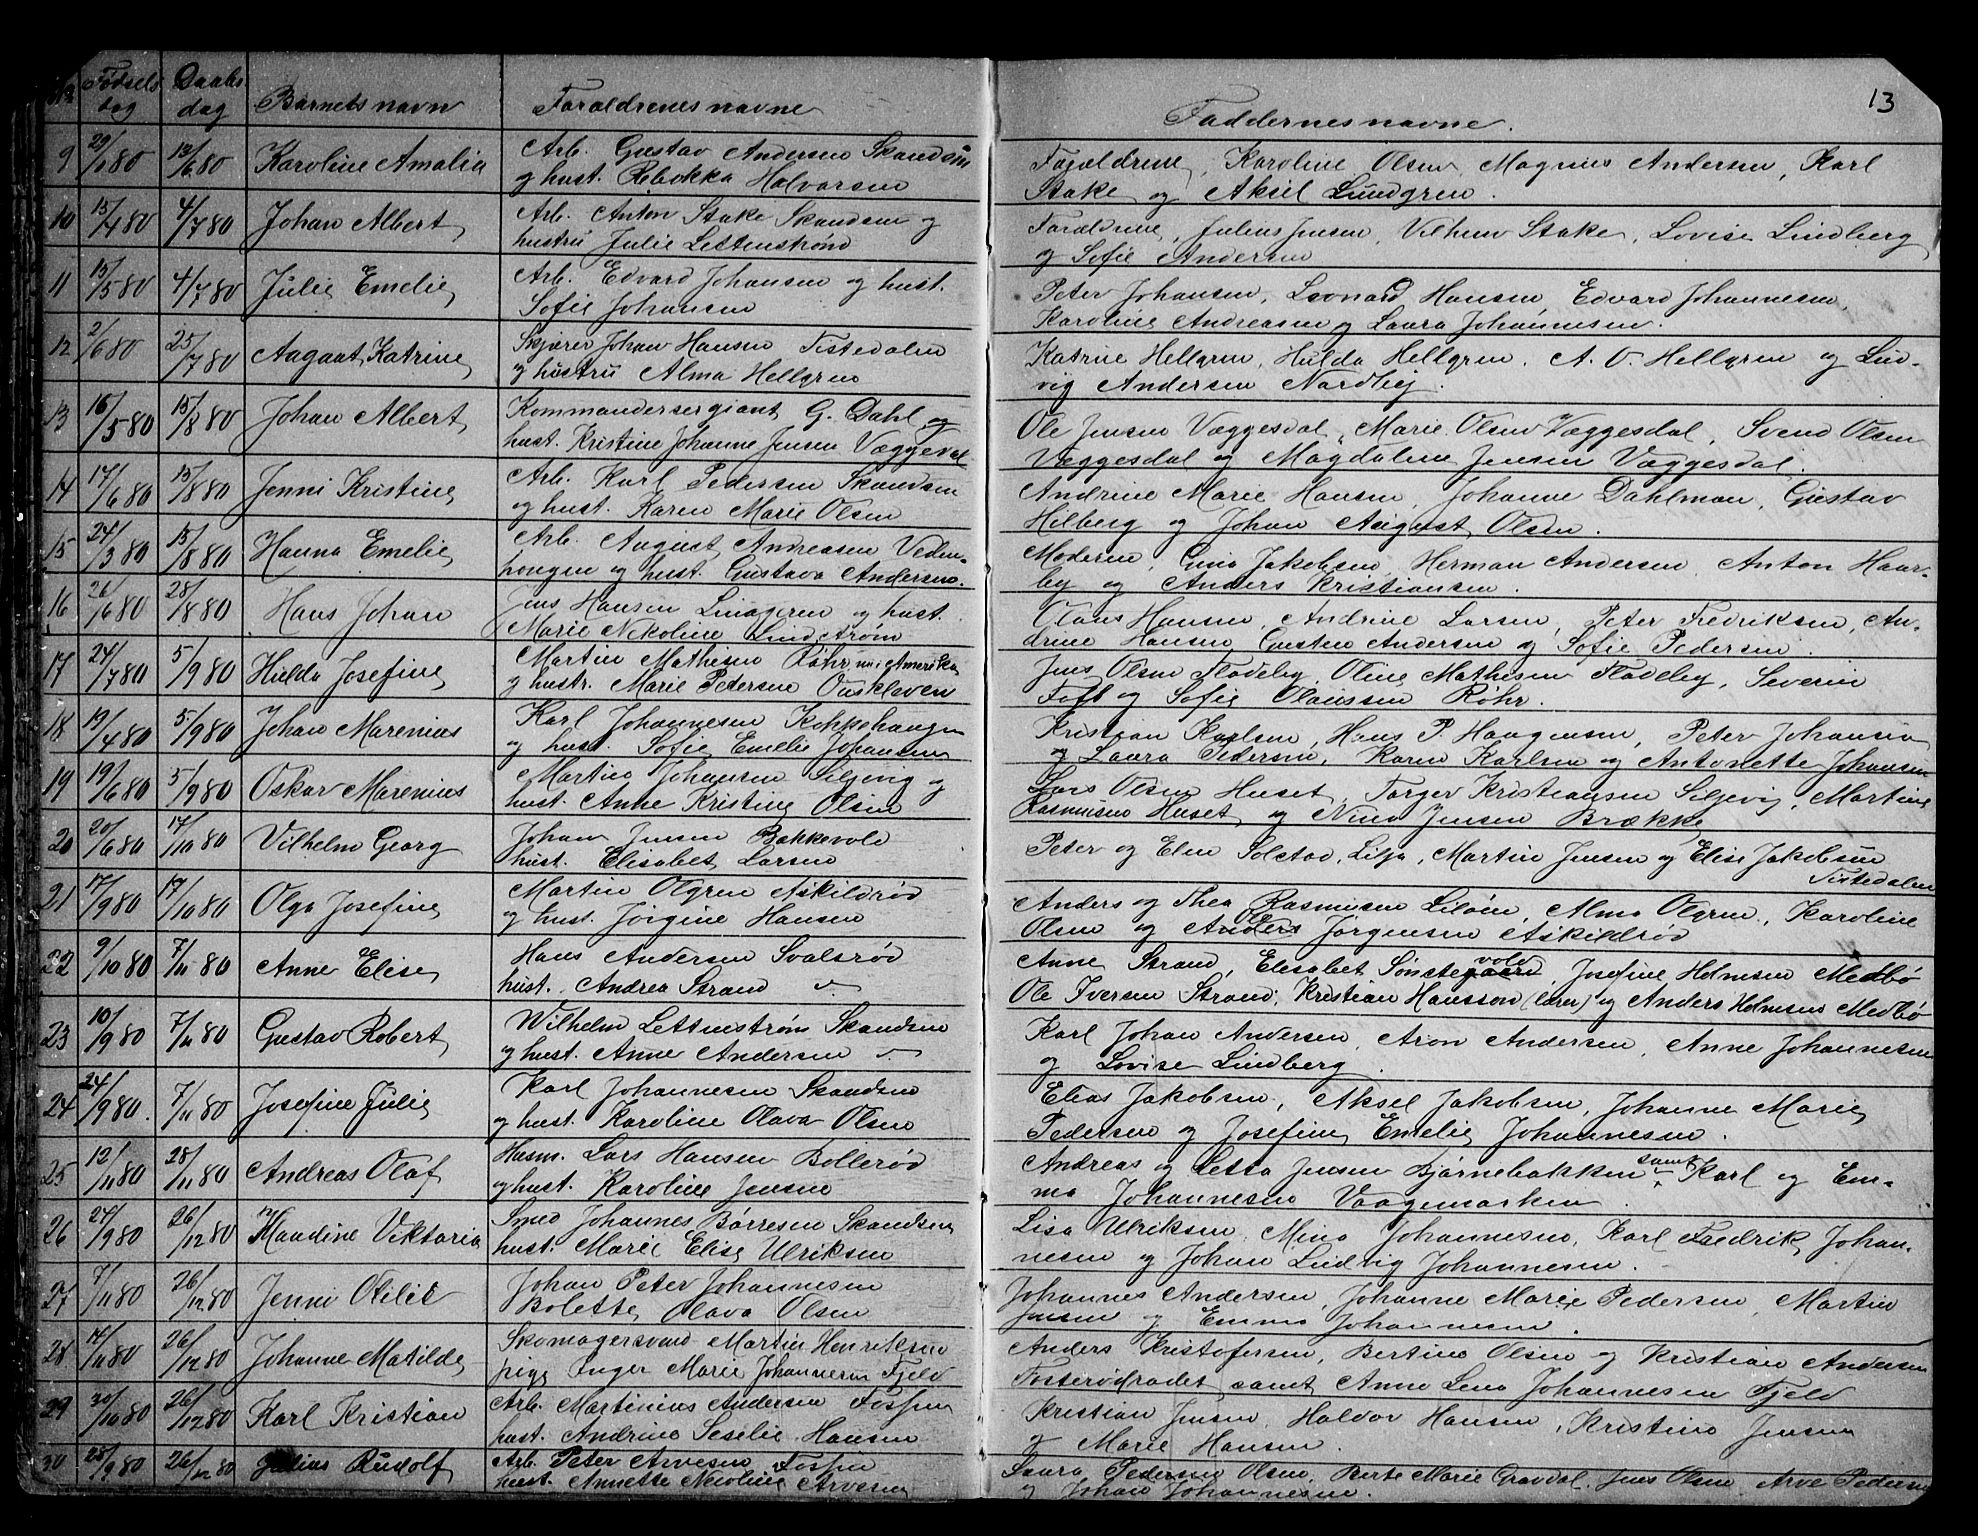 13
No Fødsels dag Daabs dag Barnets navn Forældrenes navne Faddernes navne.
9 29/1 80 13/6 80 Karoline Amalia Arb. Gustav Andersen Skandsen Forældrene, Karoline Olsen, Magnus Andersen, Karl
og hust. Rebekka Halvorsen Stake og Aksel Lundgren.
10 15/4 80 4/7 80 Johan Albert Arb. Anton Stake Skandsen og Forældrene, Julius Jensen, Vilhelm Stake, Lovise Lindberg
hustru Julie Lettenstrøm og Sofie Andersen
11 15/5 80 4/7 80 Julie Emelie Arb. Edvard Johansen og hust. Peter Johansen, Leonard Hansen, Edvard Johannesen,
Sofie Johansen Karoline Andreasen og Laura Johannesen.
12 2/6 80 25/7 80 Aagaat Katrine Skjærer Johan Hansen Tistedalen Katrine Hellgren, Hulda Hellgren, A. O. Hellgren og Lud-
og hustru Alma Hellgren vig Andersen Nordbej.
13 16/5 80 15/8 80 Johan Albert Kommandersergiant G. Dahl og Ole Jensen Væggesdal, Marie Olsen Væggesdal, Svend Olsen
hust. Kristine Johanne Jensen Væggevol Væggesdal og Magdalene Jensen Væggesdal.
14 17/6 80 15/8 80 Jenni Kristine Arb. Karl Pedersen Skandsen Andrine Marie Hansen, Johanne Dahlman, Gustav
og hust. Karen Marie Olsen Hilberg og Johan August Olsen.
15 24/3 80 15/8 80 Hanna Emelie Arb. August Andreasen Veden- Moderen, Gina Jakobsen, Herman Andersen, Anton Haar-
hougen og hust. Gustava Andersen. by og Anders Kristiansen.
16 26/6 80 28/8 80 Hans Johan Jens Hansen Lindgren og hust. Olaus Hansen, Andrine Larsen, Peter Fredriksen, An-
Marie Nikoline Lindstrøm drine Hansen, Gusten Andersen og Sofie Pedersen.
17 24/7 80 5/9 80 Hulda Josefine Martin Mathisen Røhr nu i Amerika Jens Olsen Flodeby, Oline Mathisen Flodeby, Severin
og hustr. Marie Pedersen Toft og Sofie Olaussen Røhr.
18 19/4 80 5/9 80 Johan Marenius Karl Johannesen Koppehaugen Kristian Karlsen, Hans P. Haagensen, Peter Johansen
og hust. Sofie Emelie Johansen og Laura Pedersen, Karen Karlsen og Antonette Johansen
19 19/6 80 5/9 80 Oskar Marenius Martin Johansen Siljevig og Lars Olsen Huset, Torger Kristiansen Siljevig, Martine
hust. Anne Kristine Olsen Rasmusen Huset og Nina Jensen Brække
20 20/6 80 17/10 80 Vilhelm Georg Johan Jensen Bakkevold Peter og Elen Solstad, Lilja, Martin Jensen og Elise Jakobsen
hust. Elisabet Larsen Tistedalen
21 17/9 80 17/10 80 Olga Josefine Martin Olgren Askildrød Anders og Thea Rasmusen Liløen, Alma Olgren, Karoline
og hust. Jørgine Hansen Olsen og Anders Ole Jørgensen Askildrød
22 9/10 80 7/11 80 Anne Elise Hans Andersen Svalsrød Anne Strand, Elisabet Sønstegaard vold Josefine Holmesen Medbø
hust. Andrea Strand Ole Iversen Strand, Kristian Hansson (lærer) og Anders Holmesen Medbø
23 10/9 80 7/11 80 Gustav Robert Wilhelm Lettenstrøm Skandsen Karl Johan Andersen, Aron Andersen, Anne Johannesen
og hust. Anne Andersen og Lovise Lindberg.
24 24/9 80. 7/11 80 Josefine Julie Karl Johannesen Skandsen Elias Jakobsen, Aksel Jakobsen, Johanne Marie
og hust. Karoline Olava Olsen Pedersen og Josefine Emelie Johannesen.
25 12/11 80 28/11 80 Andreas Olaf Husm. Lars Hansen Bollerød Andreas og Letta Jensen Bjørnebakken samt Karl og Em-
og hust. Karoline Jensen ma Johannesen Vaagemarken.
26 24/9 80 26/12 80 Maudine Viktoria Smed Johannes Børresen Skandsen Lisa Ulriksen, Mina Johannesen, Karl Fredrik Johan-
hust. Marie Elise Ulriksen nesen og Johan Ludvig Johannesen.
27 7/11 80 26/12 80 Jenni Otilie Johan Peter Johannesen Johannes Andersen, Johanne Marie Pedersen Martin
Bolette Olava Olsen Jensen og Emma Johannesen.
28 14/11 80 26/12 80 Johanne Matilde Skomagersvend Martin Henriksen Anders Kristofersen, Bertine Olsen og Kristian Andersen
pige Inger Marie Johannesen Fjeld Fosterødradet samt Anne Lena Johannesen Fjeld
29 30/10 80 26/12 80 Karl Kristian Arb. Martinius Andersen Fossen Kristian Jensen, Haldor Hansen, Kristine Jensen
hust. Andrine Seselie Hansen og Marie Hansen.
30 28/9 80 26/12 80 Julius Rudolf Arb. Peter Arvesen Fossen Laura Pedersen Olsen, Berte Marie Gravdal, Jens Olsen, Arve Pedersen
hust. Annette Nicoline Arvesen og Johan Johannesen.